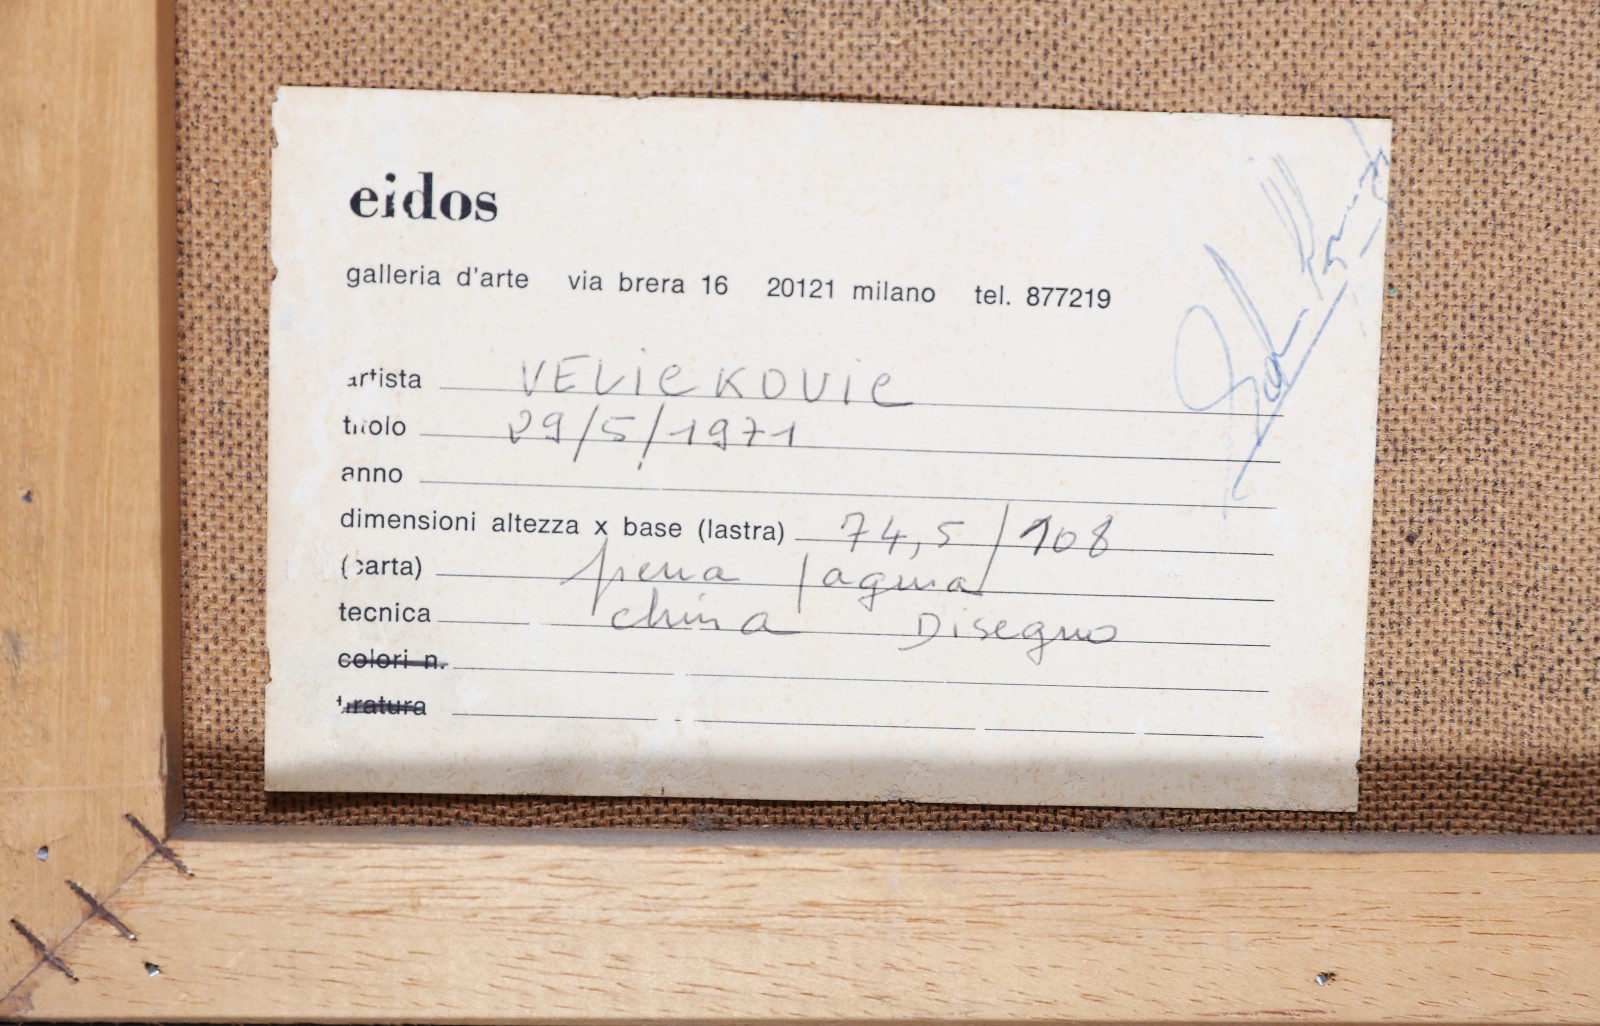 eidos
galleria d'arte via brera 16 20121 milano tel. 877219
artista VELICKOVIC
titolo 29/5/1971
anno
dimensioni altezza x base (lastra) 74,5/108
(carta) penna /
tecnica china Disegno
colori n.
tiratura